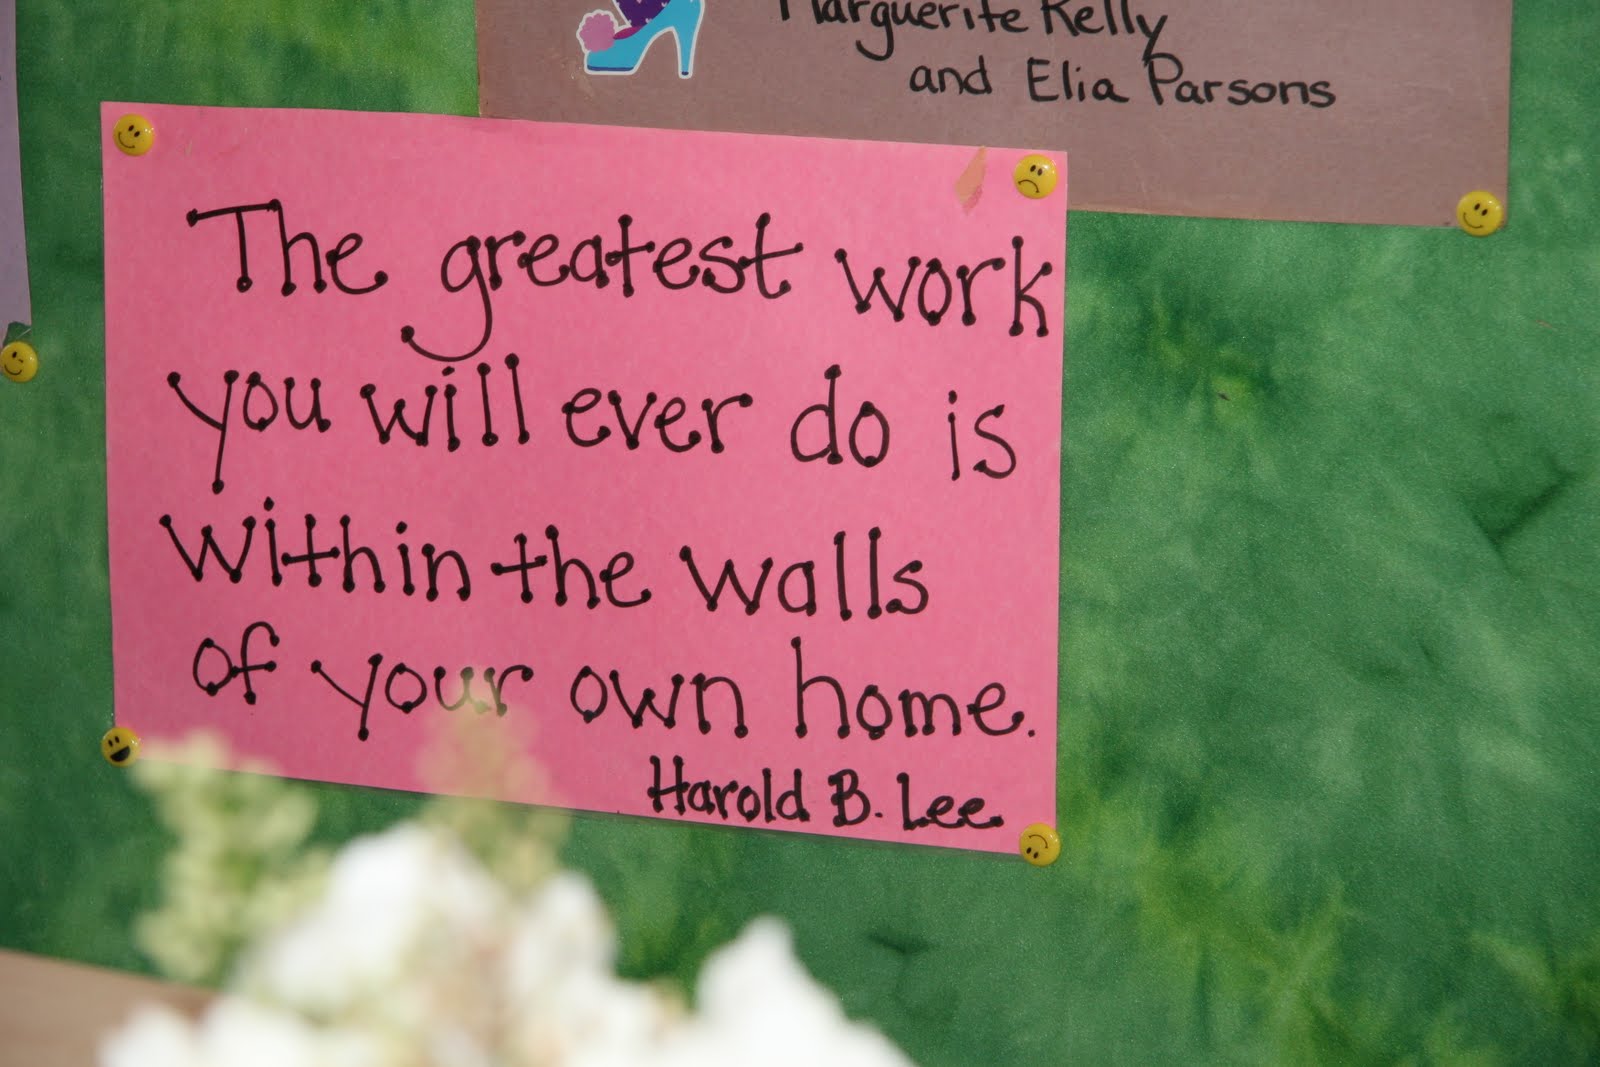 Marguerite Kelly
and Elia Parsons
The greatest work
you will ever do is
within the walls
of your own home.
Harold B. Lee